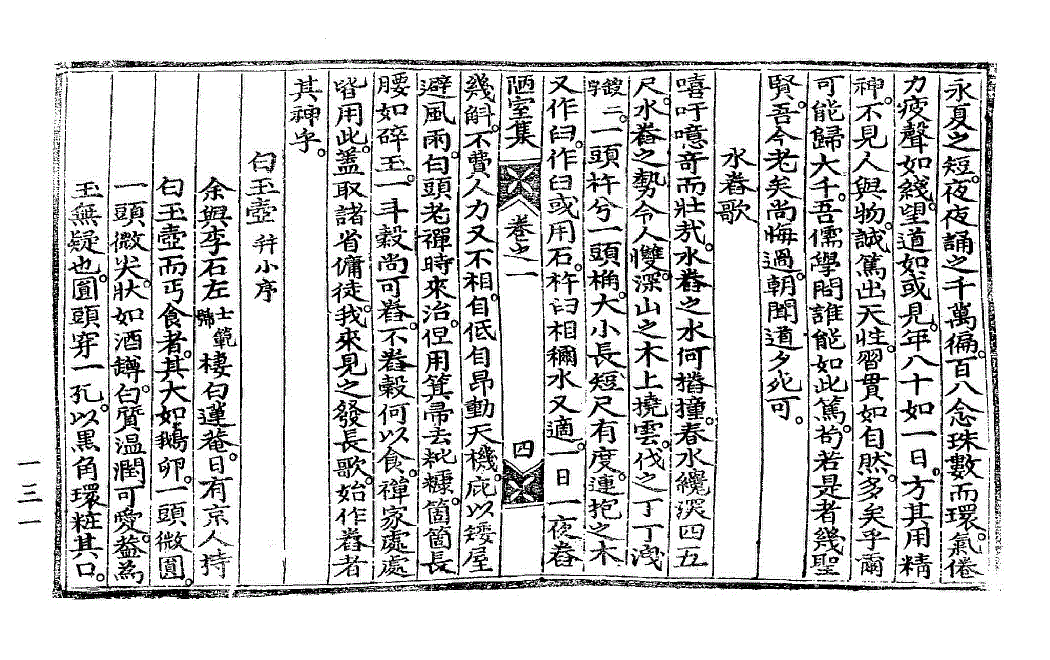 永夏之短。夜夜誦之千萬徧。百八念珠數而環。氣倦
力疲聲如綫。望道如或見。年八十如一日。方其用精
神。不見人與物。誠篤出天性。習貫如自然。多矣乎爾
可能歸大千。吾儒學問誰能如此篤。苟若是者幾聖
賢。吾今老矣尚悔過。朝聞道夕死可。
水舂歌
嘻吁噫奇而壯哉。水舂之水何摏撞。春水纔深四五
尺。水舂之勢令人愯。深山之木上撓雲。伐之丁丁洩
二。一頭杵兮一頭桷。大小長短尺有度。連抱之木
又作臼。作臼或用石。杵臼相稱水又適。一日一夜舂
陋室集 卷之一 四
幾斛。不費人力又不相。自低自昂動天機。庇以矮屋
避風雨。白頭老禪時來治。但用箕帚去粃糠。箇箇長
腰如碎玉。一斗穀尚可舂。不舂穀何以食。禪家處處
皆用此。蓋取諸省傭徒。我來見之發長歌。始作舂者
其神乎。
白玉壺 幷小序
余與李石左士範號棲白蓮菴。日有京人持
白玉壺而丐食者。其大如鵝卵。一頭微圓。
一頭微尖。狀如酒罇。白質溫潤可愛。益為
玉無疑也。圓頭穿一孔。以黑角環粧其口。
一三一